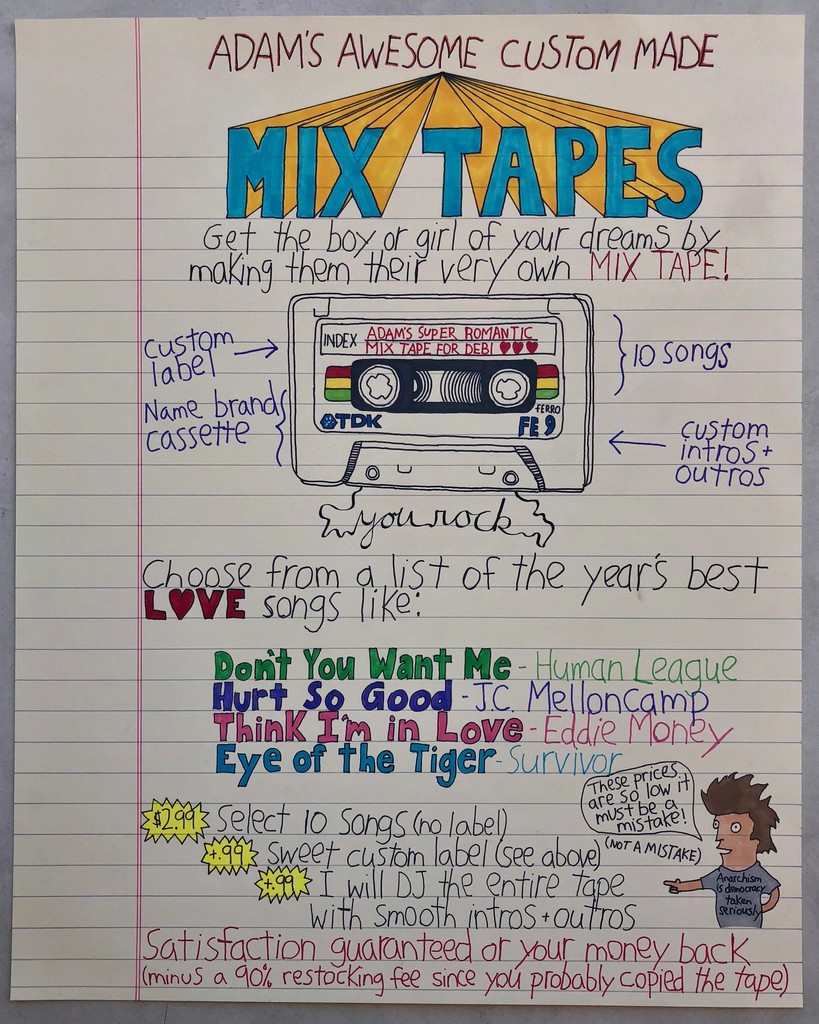 ADAM'S AWESOME CUSTOM MADE
MIX TAPES
Get the boy or girl of your dreams by
making them their very own MIX TAPE!
custom
label
Name brand
cassette
INDEX ADAM'S SUPER ROMANTIC
MIX TAPE FOR DEBI ♥♥♥
TDK
FERRO
FE 9
10 songs
custom
intros +
outros
you rock
Choose from a list of the year's best
L♥VE songs like:
Don't You Want Me - Human League
Hurt So Good - J.C. Melloncamp
Think I'm in Love - Eddie Money
Eye of the Tiger - Survivor
These prices
are so low it
must be a
mistake!
(NOT A MISTAKE)
Anarchism
is democracy
taken
seriously
$2.99 Select 10 Songs (no label)
+.99 Sweet custom label (see above)
+.99 I will DJ the entire tape
with smooth intros + outros
Satisfaction guaranteed or your money back
(minus a 90% restocking fee since you probably copied the tape)